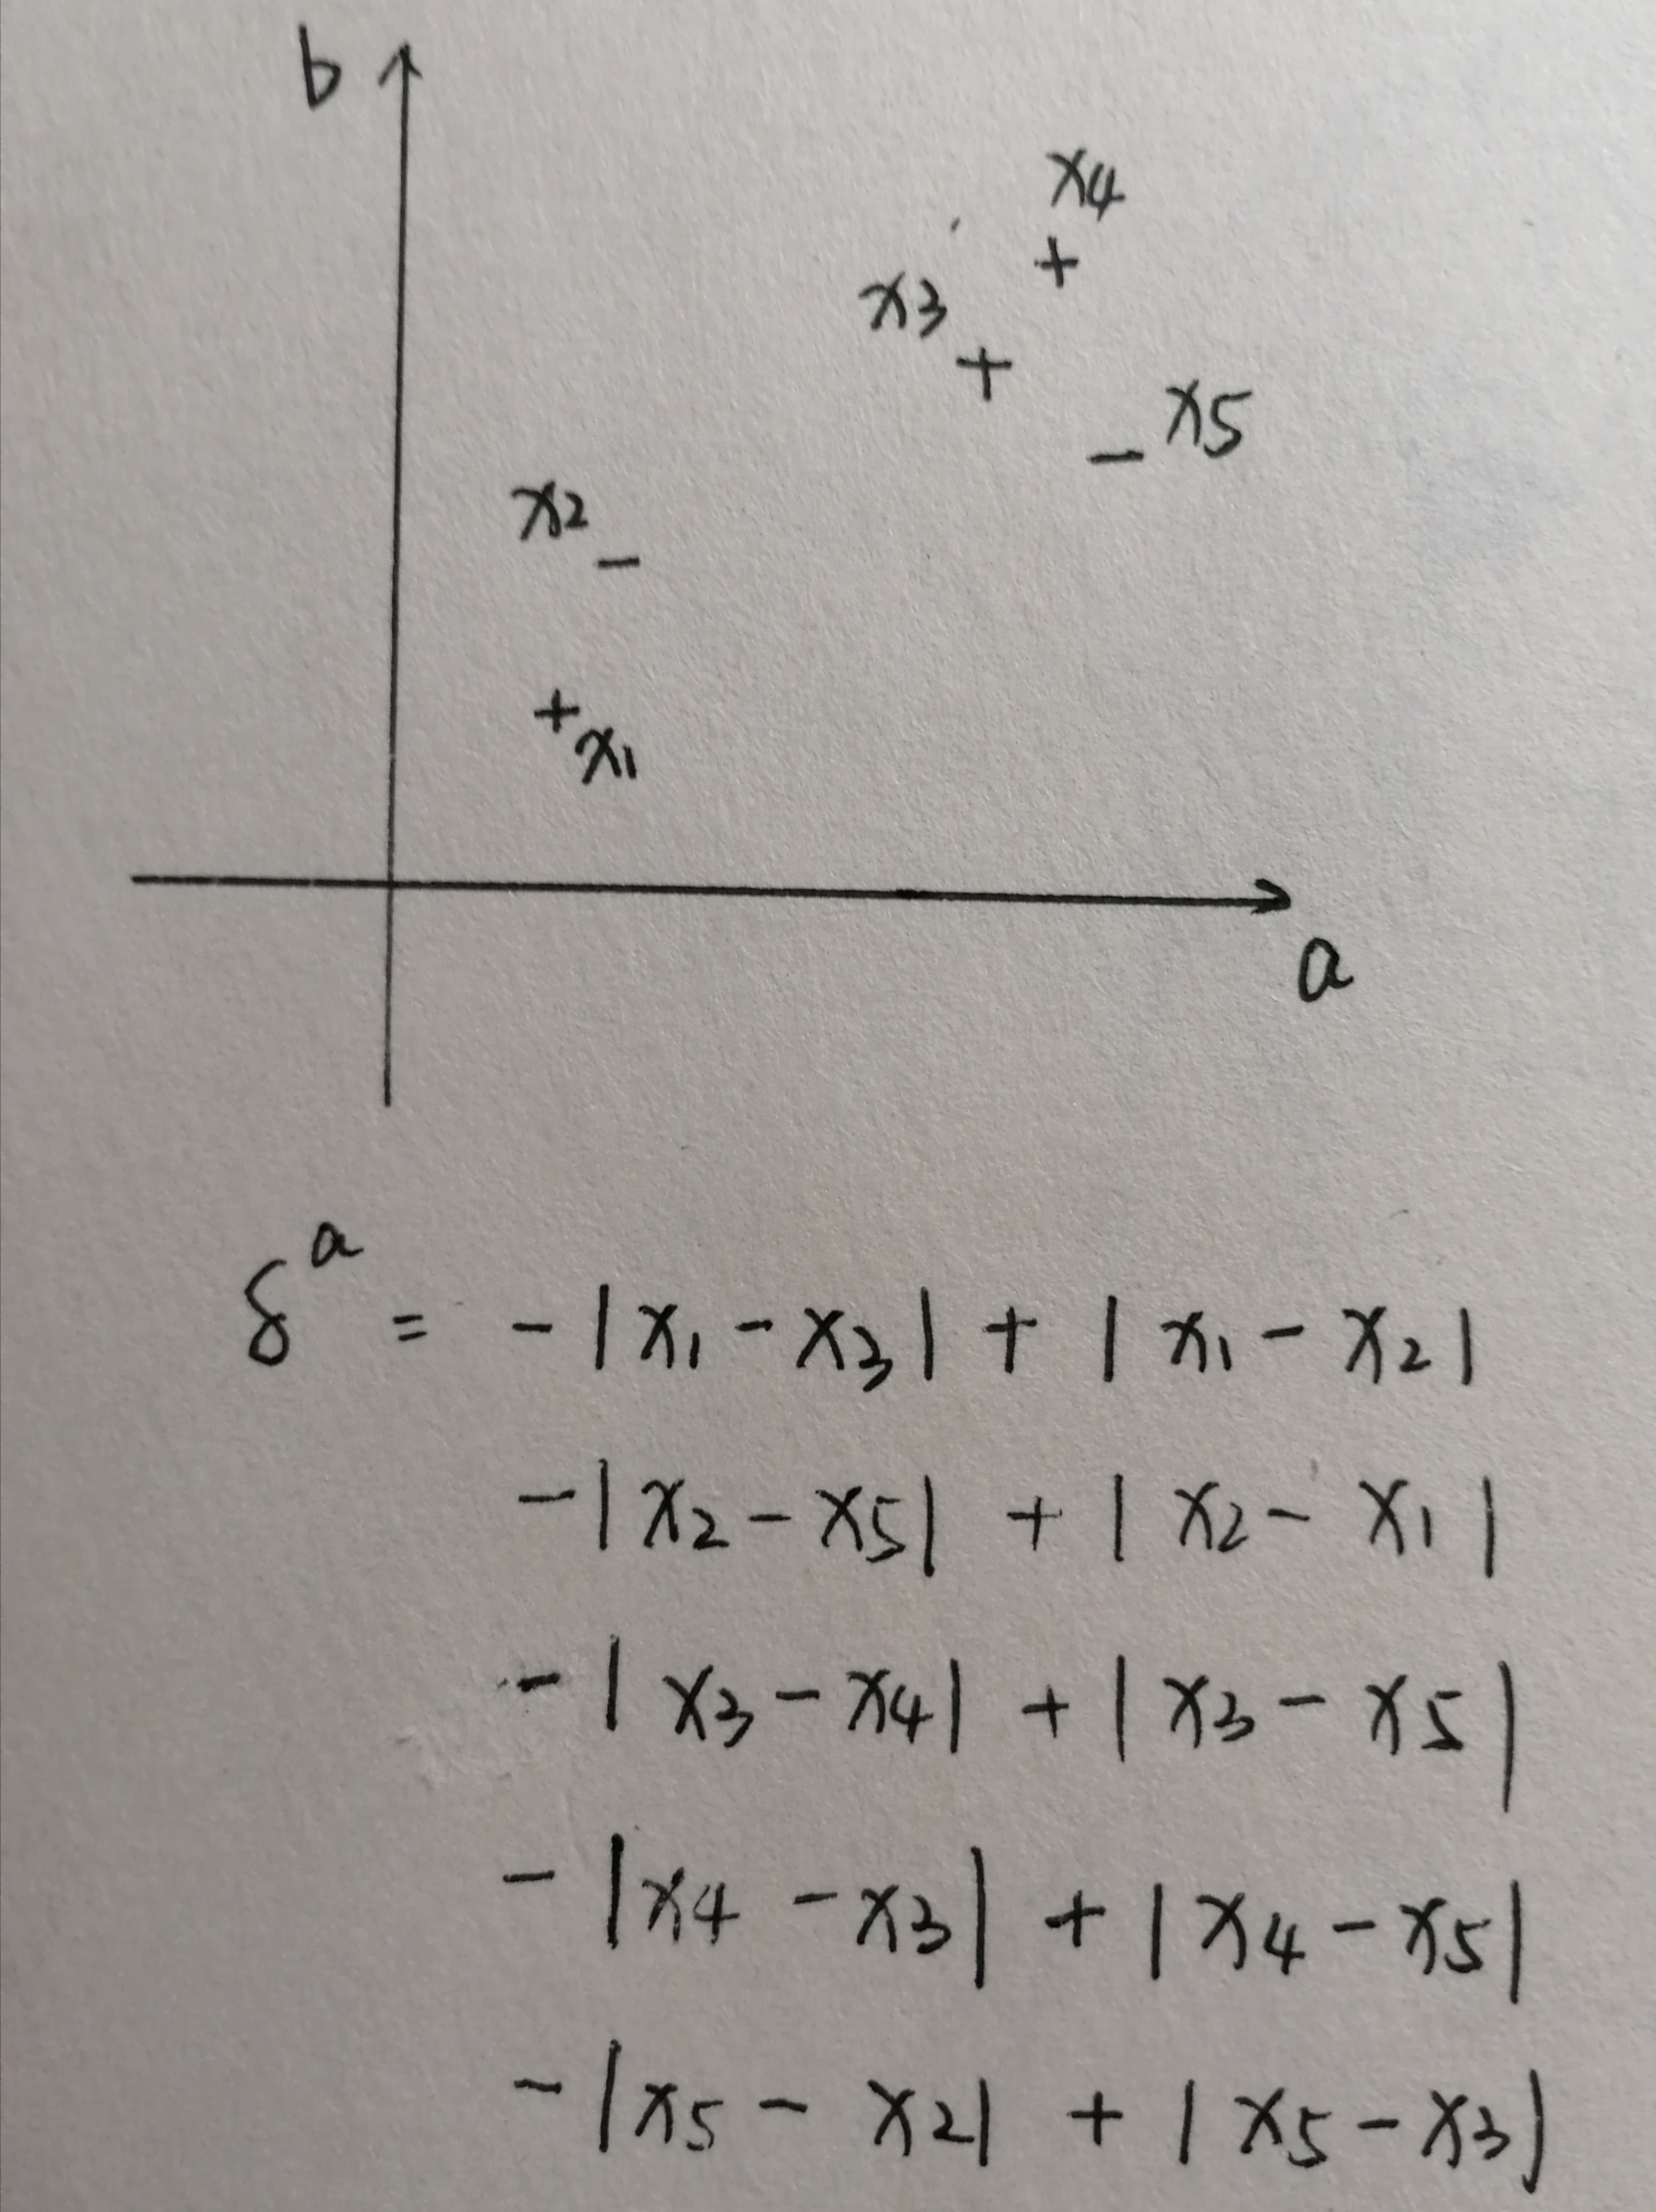 b
x4
+
x3
+
- x5
x2
-
+
x1
a
δ^a = -|x1 - x3| + |x1 - x2|
-|x2 - x5| + |x2 - x1|
-|x3 - x4| + |x3 - x5|
-|x4 - x3| + |x4 - x5|
-|x5 - x2| + |x5 - x3|